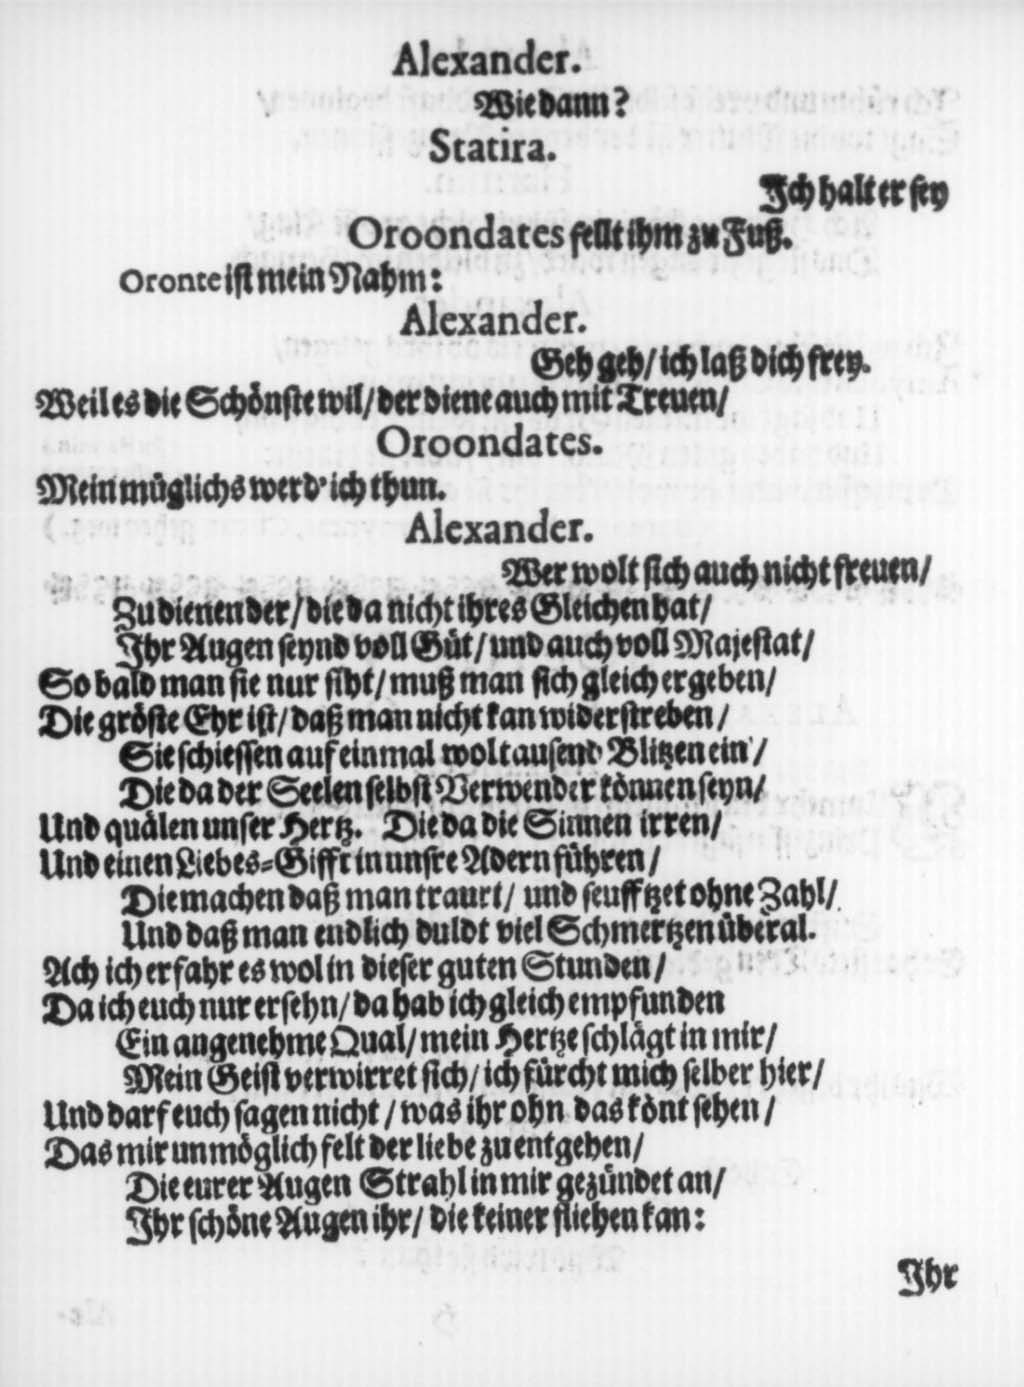 Alexander.
Wie dann?
Statira.
Ich halt er sey
Oroondates fellt ihm zu Fuß.
Oronte ist mein Nahm:
Alexander.
Geh geh/ ich laß dich frey.
Weil es die Schönste wil/ der diene auch mit Treuen/
Oroondates.
Mein müglichs werd' ich thun.
Alexander.
Wer wolt sich auch nicht freuen/
Zu dienen der/ die da nicht ihres Gleichen hat/
Ihr Augen seynd voll Güt/ und auch voll Majestat/
So bald man sie nur siht/ muß man sich gleich ergeben/
Die gröste Ehr ist/ daß man nicht kan widerstreben/
Sie schiessen auf einmal wol tausend Blitzen ein/
Die da der Seelen selbst Verwender können seyn/
Und quälen unser Hertz. Die da die Sinnen irren/
Und einen Liebes-Gifft in unsre Adern führen/
Die machen daß man traurt/ und seufftzet ohne Zahl/
Und daß man endlich duldt viel Schmertzen überal.
Ach ich erfahr es wol in dieser guten Stunden/
Da ich euch nur ersehn/ da hab ich gleich empfunden
Ein angenehme Qual/ mein Hertze schlägt in mir/
Mein Geist verwirret sich/ ich fürcht mich selber hier/
Und darf euch sagen nicht/ was ihr ohn das könt sehen/
Das mir unmöglich felt der liebe zu entgehen/
Die eurer Augen Strahl in mir gezündet an/
Ihr schöne Augen ihr/ die keiner fliehen kan:
Ihr